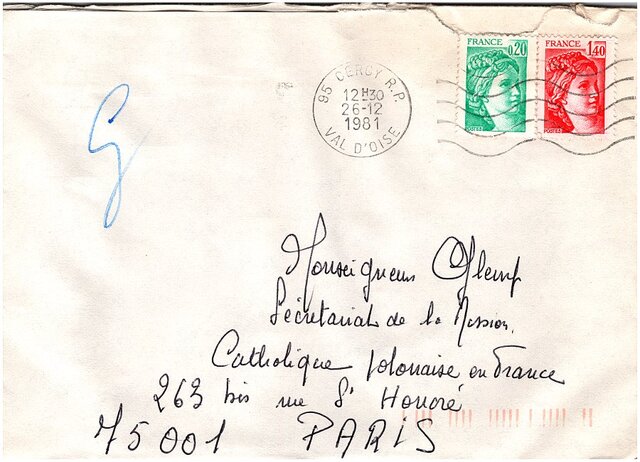 FRANCE 0,20
FRANCE 1,40
95 CERGY R.P.
12H30
26-12
1981
VAL D'OISE
Monseigneur Glemp
Sécretariat de la Mission
Catholique polonaise en France
263 bis rue St Honoré
75001 PARIS